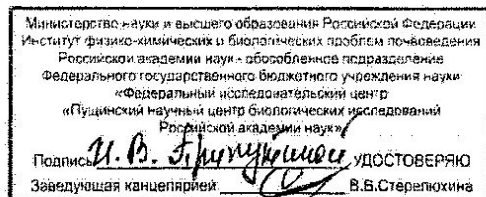 Министерство науки и высшего образования Российской Федерации
Институт физико-химических и биологических проблем почвоведения
Российской академии наук - обособленное подразделение
Федерального государственного бюджетного учреждения науки
«Федеральный исследовательский центр
«Пущинский научный центр биологических исследований
Российской академии наук»
Подпись И. В. УДОСТОВЕРЯЮ
Заведующая канцелярией В.В.Стерелюхина